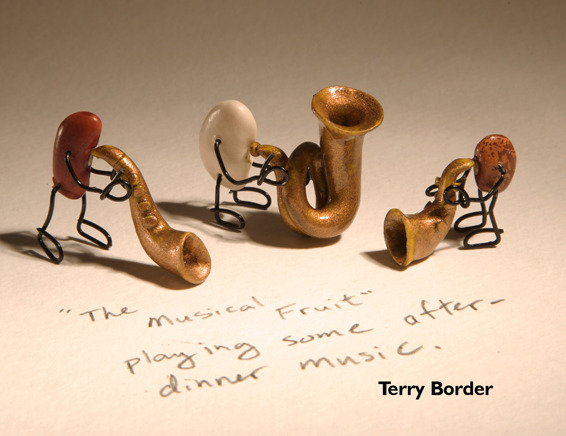 "The Musical Fruit"
playing some after-
dinner music.
Terry Border